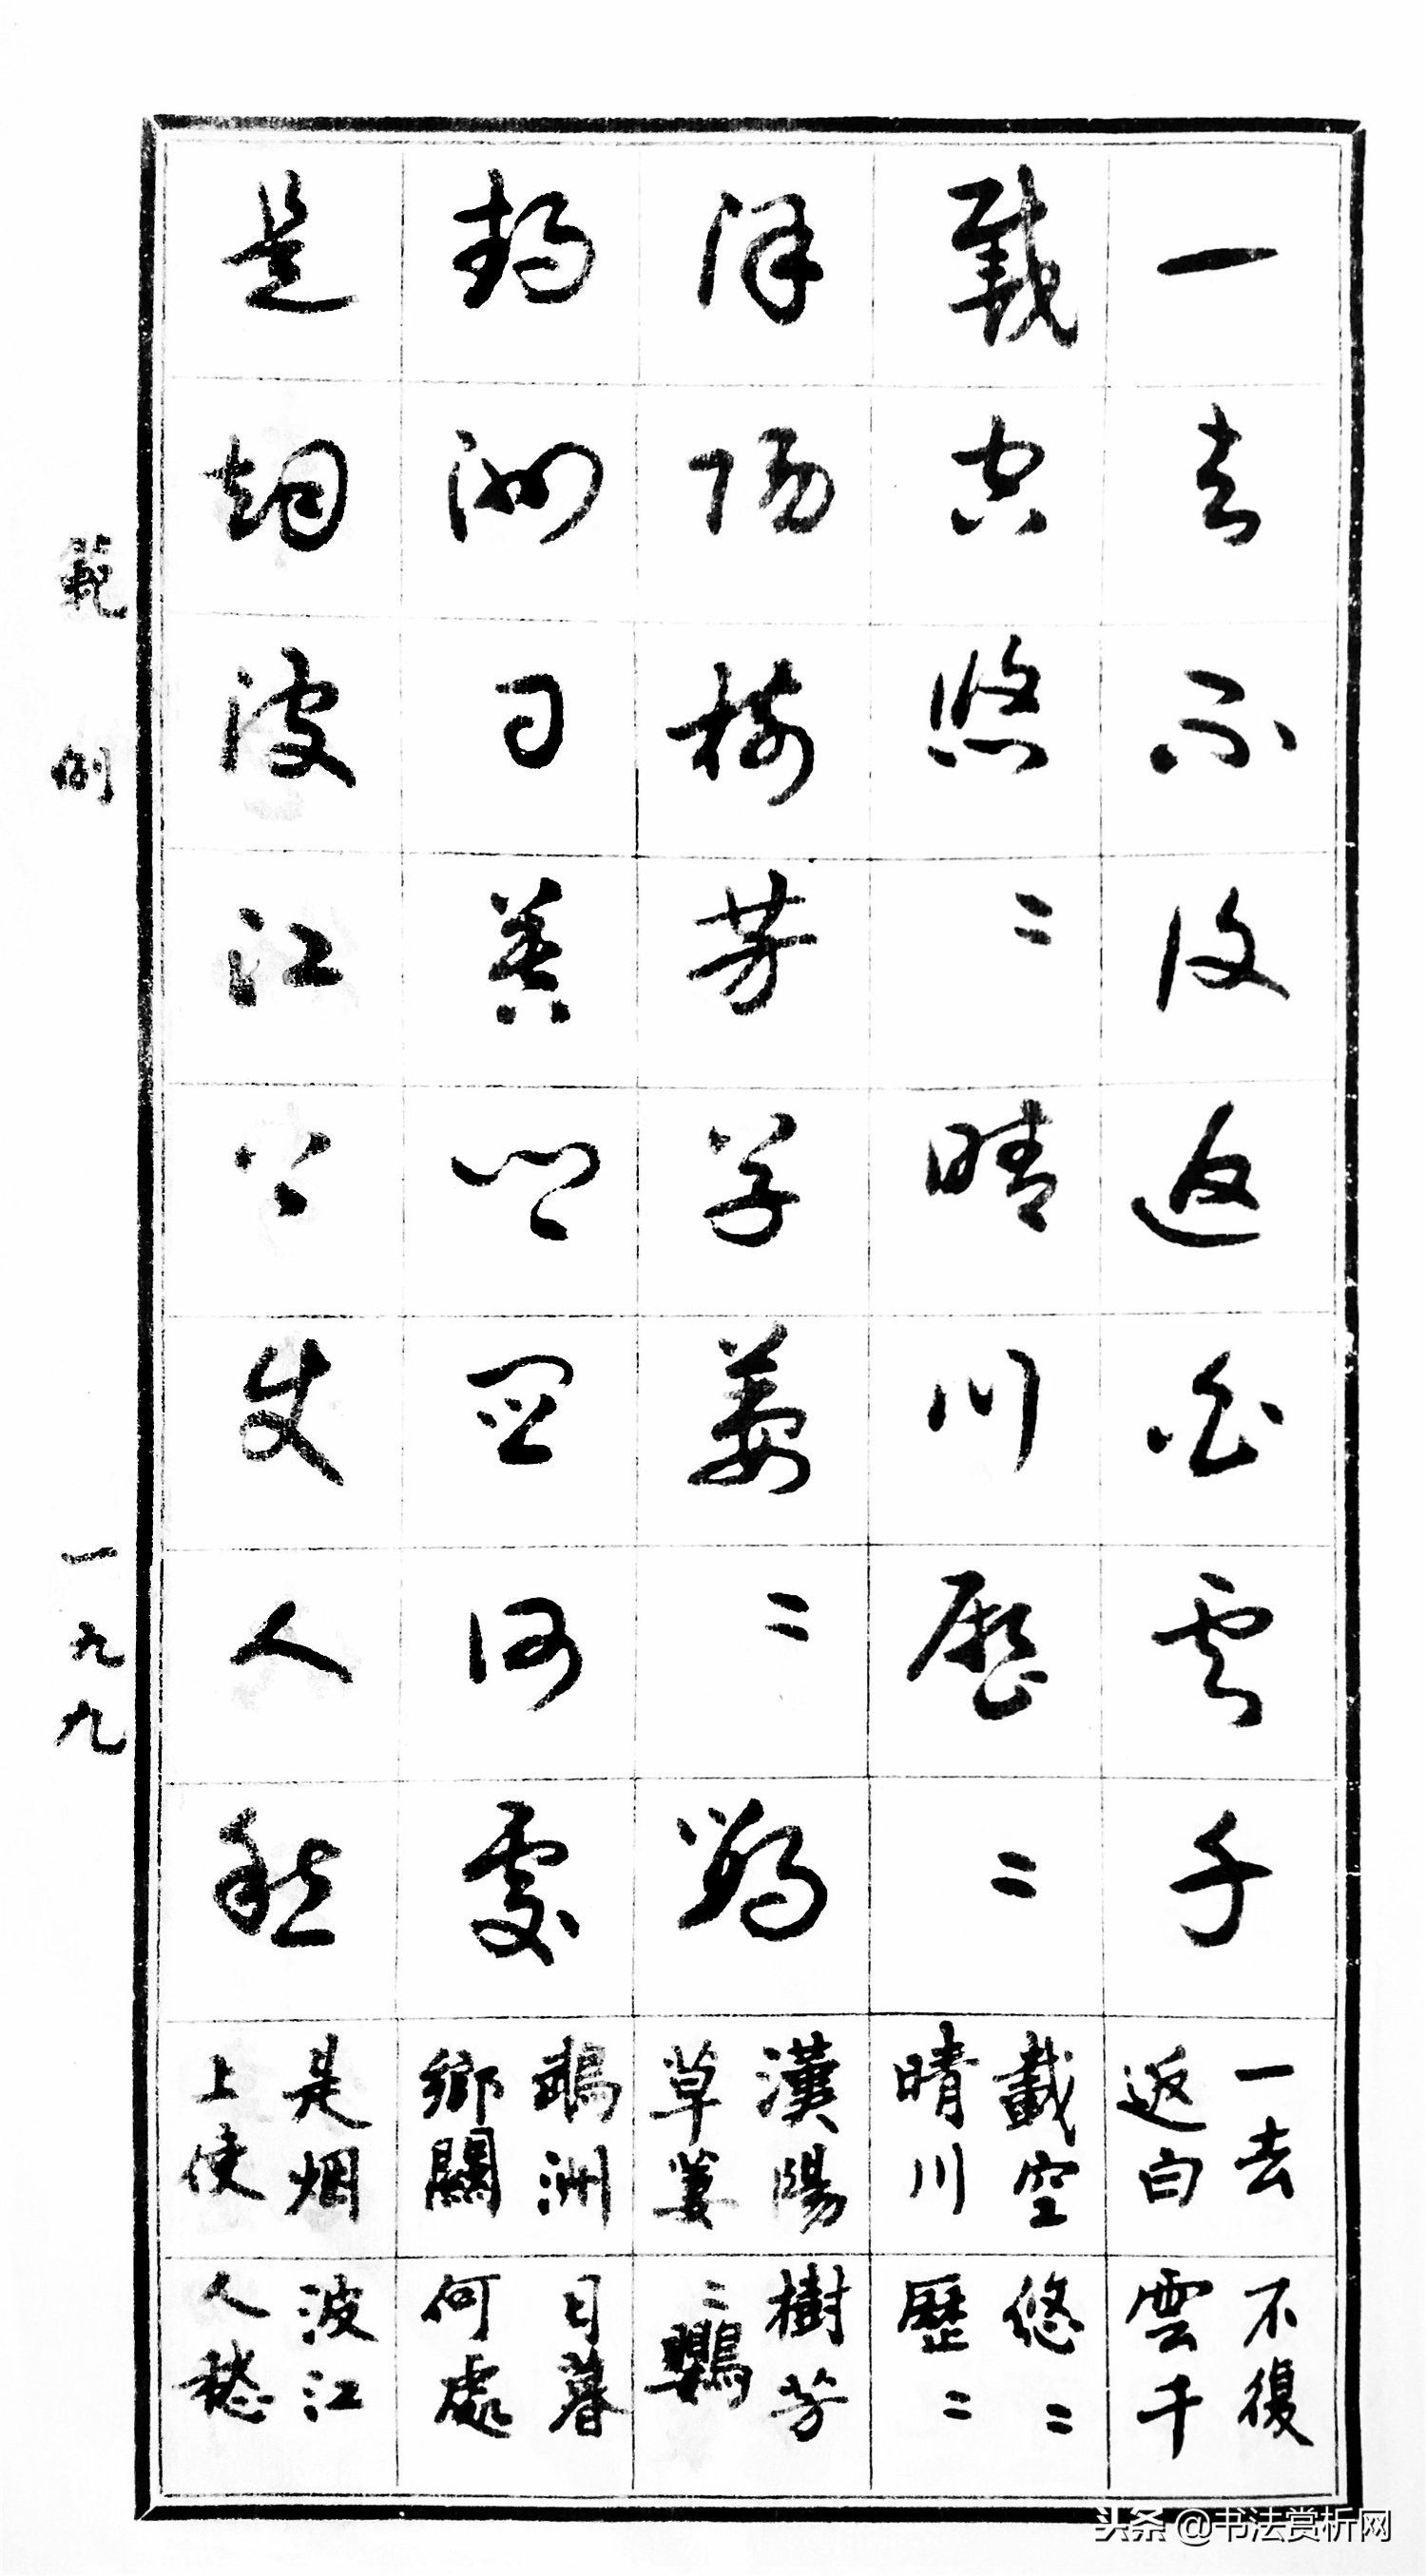 一去不復返白雲千
一去不復
返白雲千
載空悠〻晴川歷〻
載空悠〻
晴川歷〻
漢陽樹芳草萋〻鸚
漢陽樹芳
草萋〻鸚
鵡洲日暮鄉關何處
鵡洲日暮
鄉關何處
是烟波江上使人愁
是烟波江
上使人愁
範例
一九九
头条 @书法赏析网